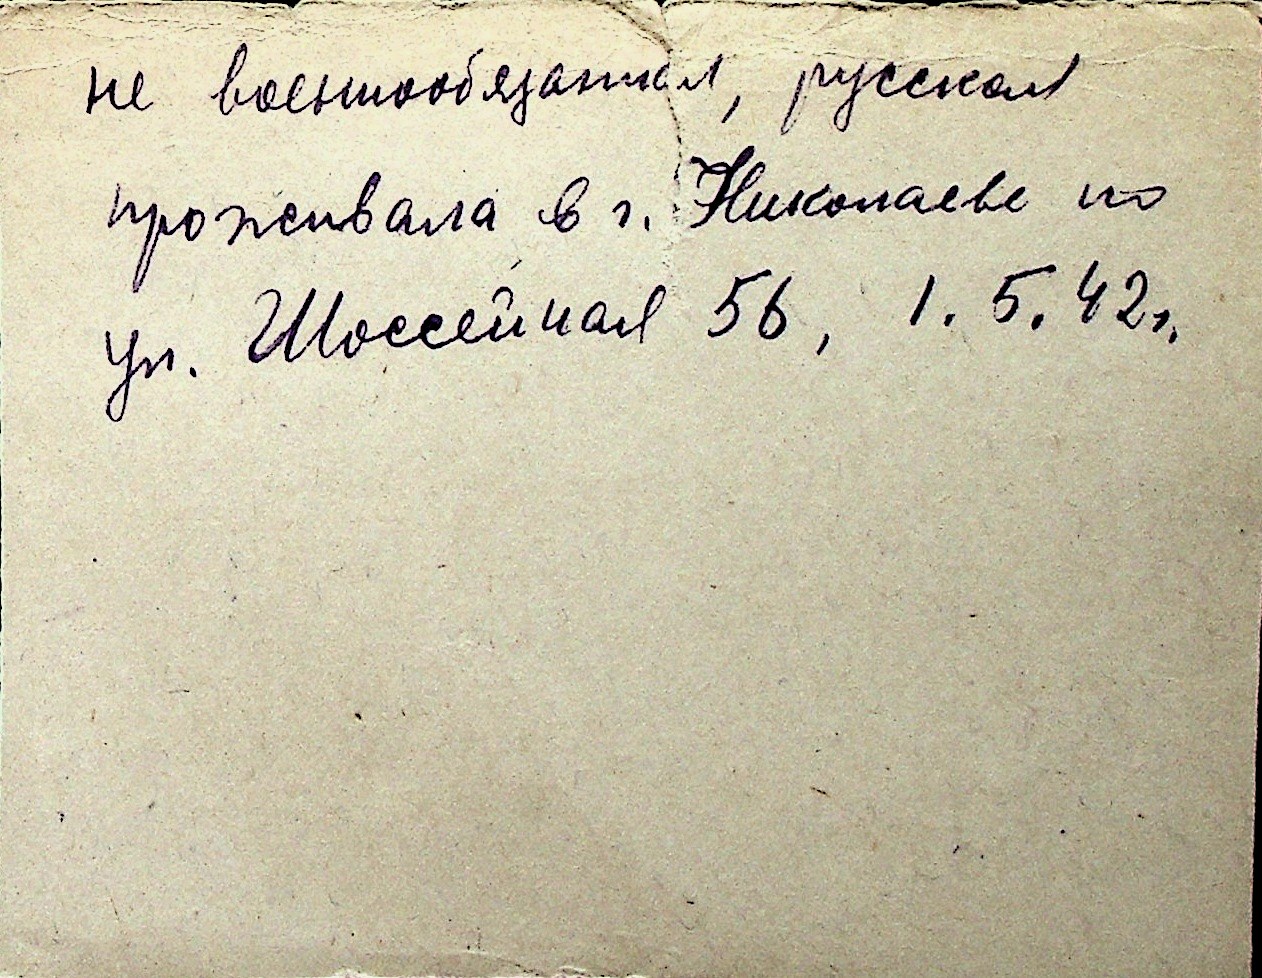 не военнообязанная, русская
проживала в г. Николаеве по
ул. Шоссейная 56, 1.5.42г.